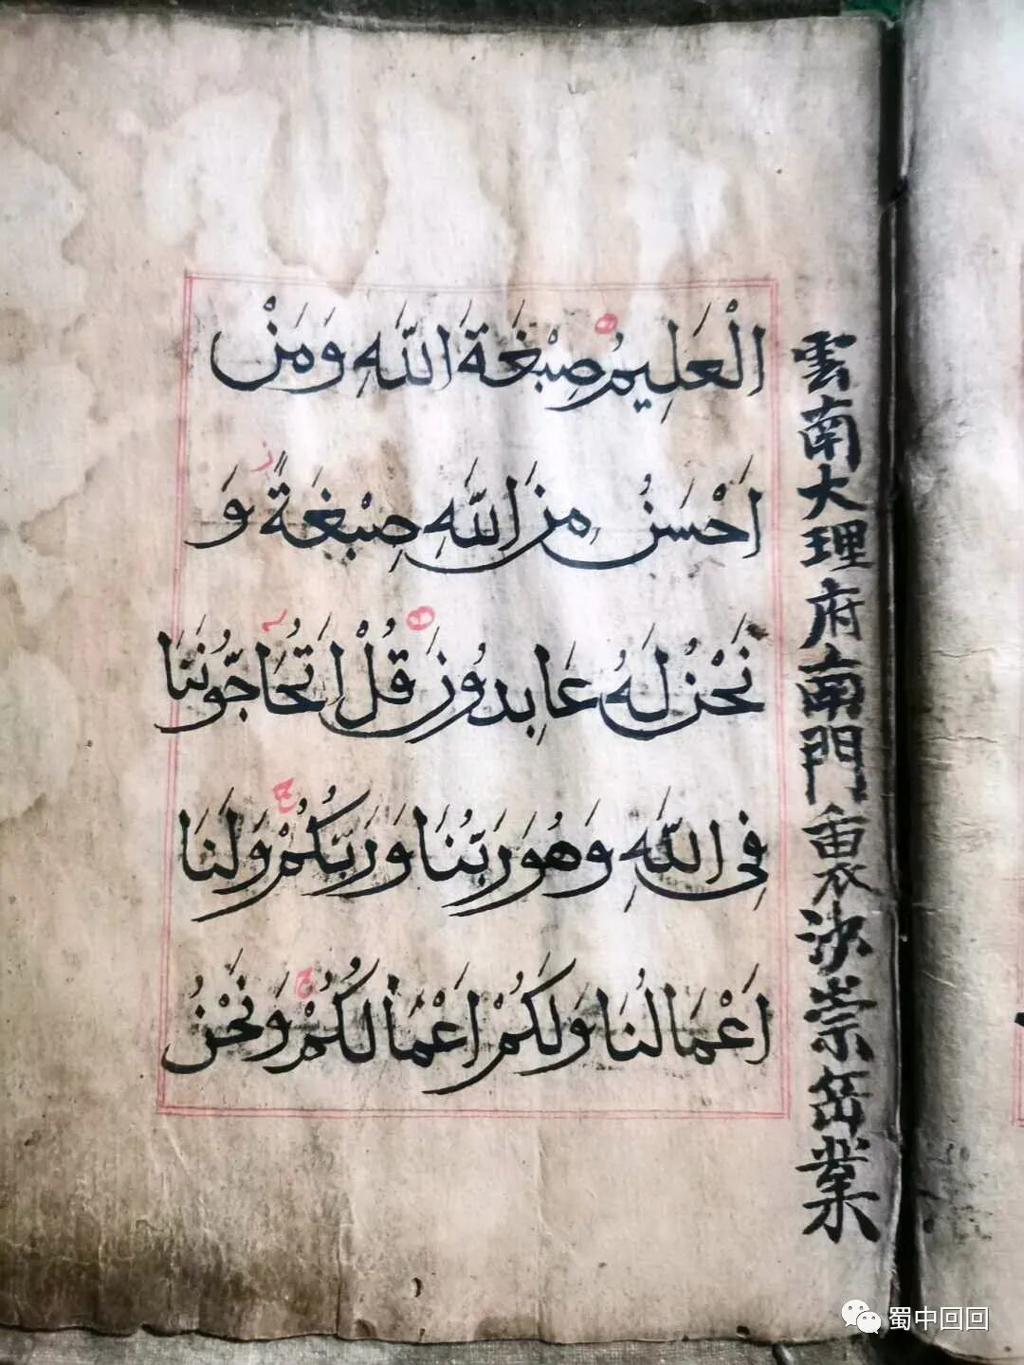 الْعَلِيمُ صِبْغَةَ اللّٰهِ وَمَنْ
اَحْسَنُ مِنَ اللّٰهِ صِبْغَةً وَ
نَحْنُ لَهُ عَابِدُونَ قُلْ اَتُحَاجُّونَنَا
فِى اللّٰهِ وَهُوَ رَبُّنَا وَرَبُّكُمْ وَلَنَا
اَعْمَالُنَا وَلَكُمْ اَعْمَالُكُمْ وَنَحْنُ
雲南大理府南門裏沙崇岳業
蜀中回回